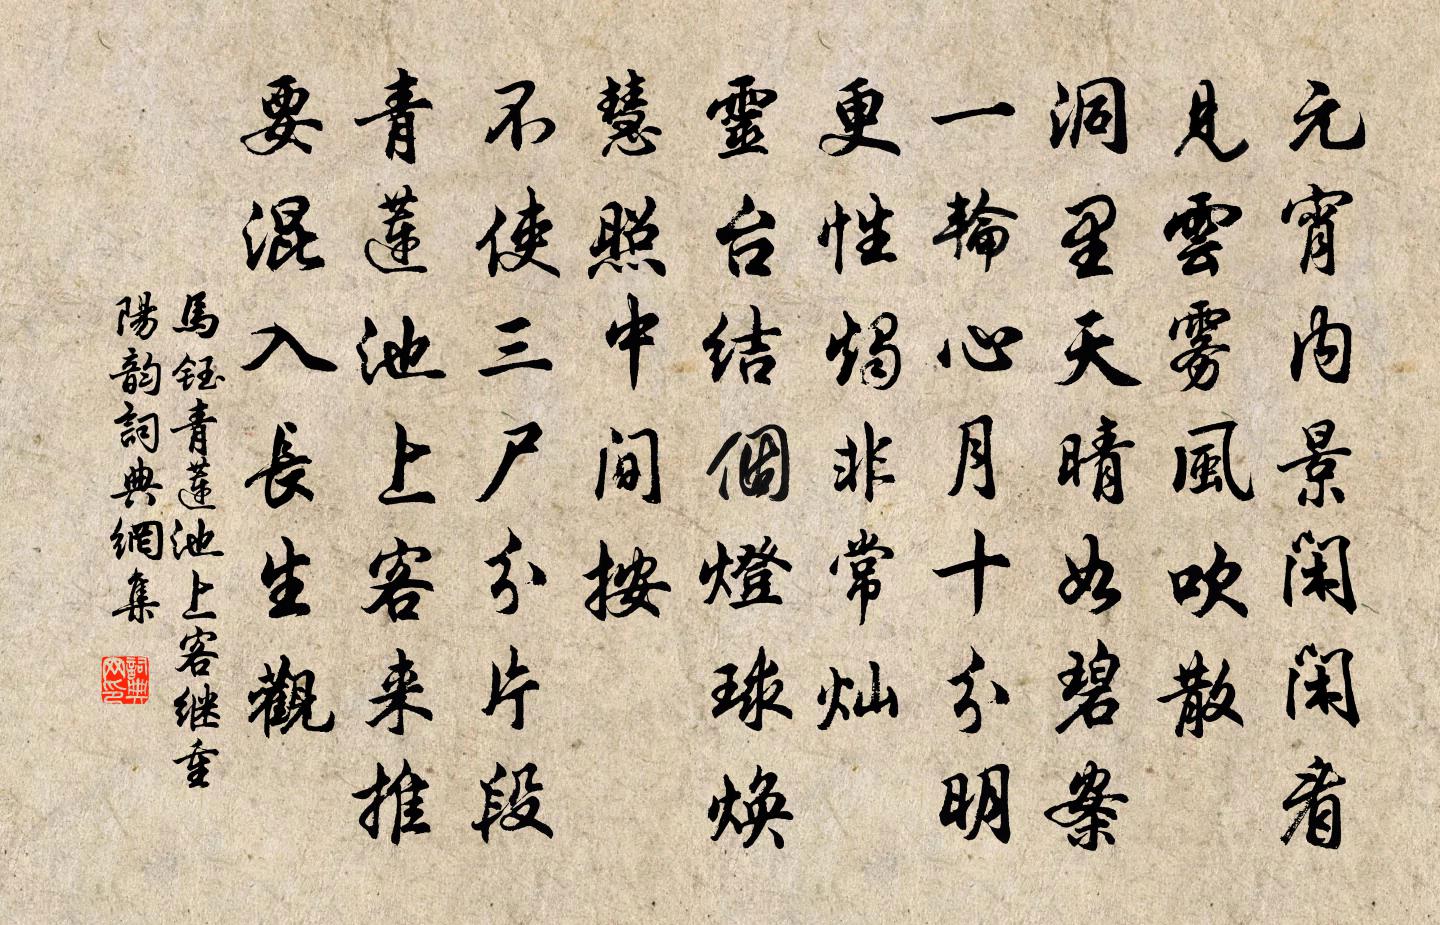 元宵内景閑閑看
見雲雾風吹散
洞里天晴如碧案
一輪心月十分明
更性燭非常灿
靈台结個燈球焕
慧照中間按
不使三尸分片段
青蓮池上客来推
要混入長生觀
馬鈺青蓮池上客继重
陽韵詞典網集
詞典
网印